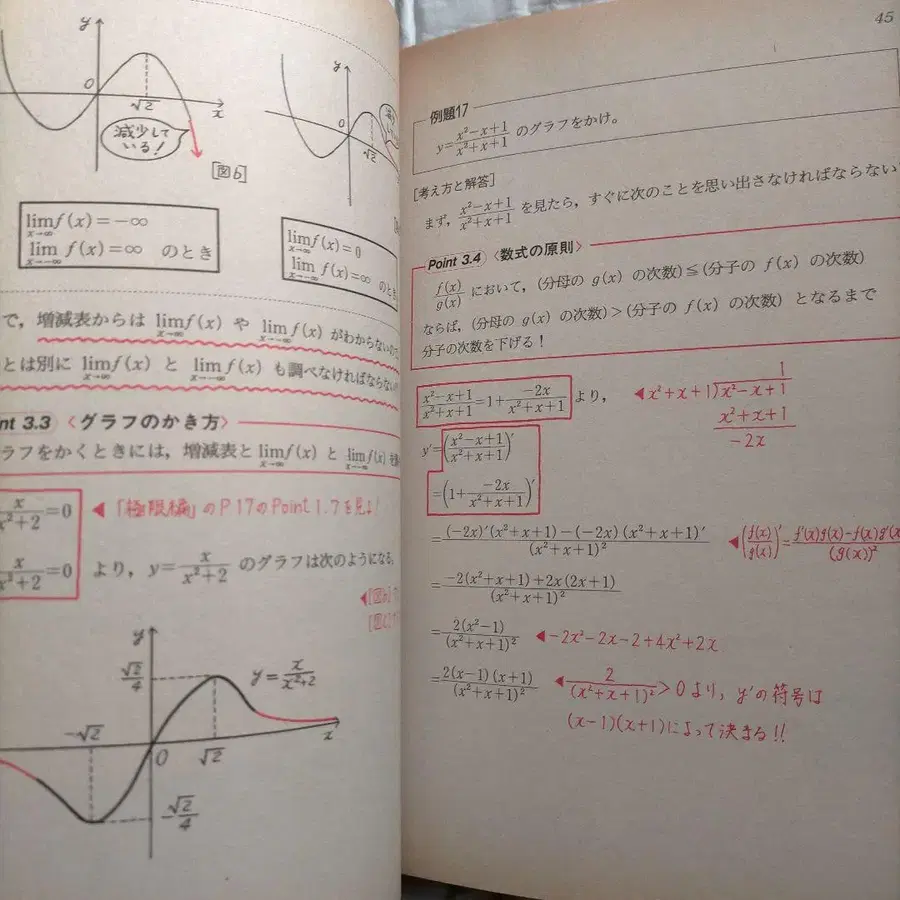 y
O
√2
x
減少して
いる！
[図b]
y
O
√2
lim f(x)=-∞
x→∞
lim f(x)=∞ のとき
x→-∞
lim f(x)=0
x→∞
lim f(x)=∞ のとき
x→-∞
で，増減表からは lim f(x) や lim f(x) がわからないので
x→∞ x→-∞
とは別に lim f(x) と lim f(x) も調べなければならない
x→∞ x→-∞
nt 3.3 〈グラフのかき方〉
ラフをかくときには，増減表と lim f(x) と lim f(x) を
x→∞ x→-∞
x/(x²+2)=0 ◀「極限編」のP17のPoint 1.7を見よ！
x/(x²+2)=0 より，y=x/(x²+2) のグラフは次のようになる。
◀[図b]
y
√2/4
y=x/(x²+2)
-√2
O
√2
x
-√2/4
45
例題17
y=(x²-x+1)/(x²+x+1) のグラフをかけ。
[考え方と解答]
まず，(x²-x+1)/(x²+x+1) を見たら，すぐに次のことを思い出さなければならない
Point 3.4 〈数式の原則〉
f(x)/g(x) において，(分母の g(x) の次数)≦(分子の f(x) の次数)
ならば，(分母の g(x) の次数)>(分子の f(x) の次数) となるまで
分子の次数を下げる！
(x²-x+1)/(x²+x+1)=1+(-2x)/(x²+x+1) より，
1
◀x²+x+1)x²-x+1
x²+x+1
-2x
y'=((x²-x+1)/(x²+x+1))'
=(1+(-2x)/(x²+x+1))'
=((-2x)'(x²+x+1)-(-2x)(x²+x+1)')/(x²+x+1)² ◀(f(x)/g(x))'=(f'(x)g(x)-f(x)g'(x)/(g(x))²
=(-2(x²+x+1)+2x(2x+1))/(x²+x+1)²
=2(x²-1)/(x²+x+1)² ◀-2x²-2x-2+4x²+2x
=2(x-1)(x+1)/(x²+x+1)² ◀2/(x²+x+1)²>0 より，y'の符号は
(x-1)(x+1)によって決まる!!